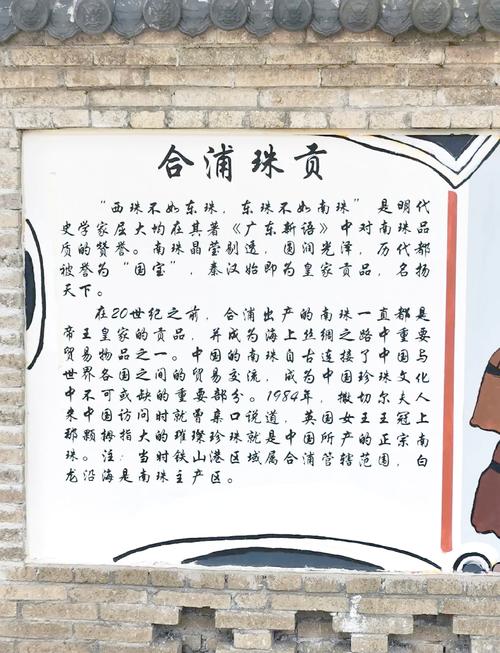 合浦珠贡
“西珠不如东珠，东珠不如南珠”是明代
史学家屈大均在其著《广东新语》中对南珠品
质的赞誉。南珠晶莹剔透，圆润光泽，历代都
被誉为“国宝”，秦汉始即为皇家贡品，名扬
天下。
在20世纪之前，合浦出产的南珠一直都是
帝王皇家的贡品，并成为海上丝绸之路中重要
贸易物品之一。中国的南珠自古连接了中国与
世界各国之间的贸易交流，成为中国珍珠文化
中不可或缺的重要部分。1984年，撒切尔夫人
来中国访问时就曾亲口说道，英国女王王冠上
那颗拇指大的璀璨珍珠就是中国所产的正宗南
珠。注：当时铁山港区域属合浦管辖范围，白
龙沿海是南珠主产区。